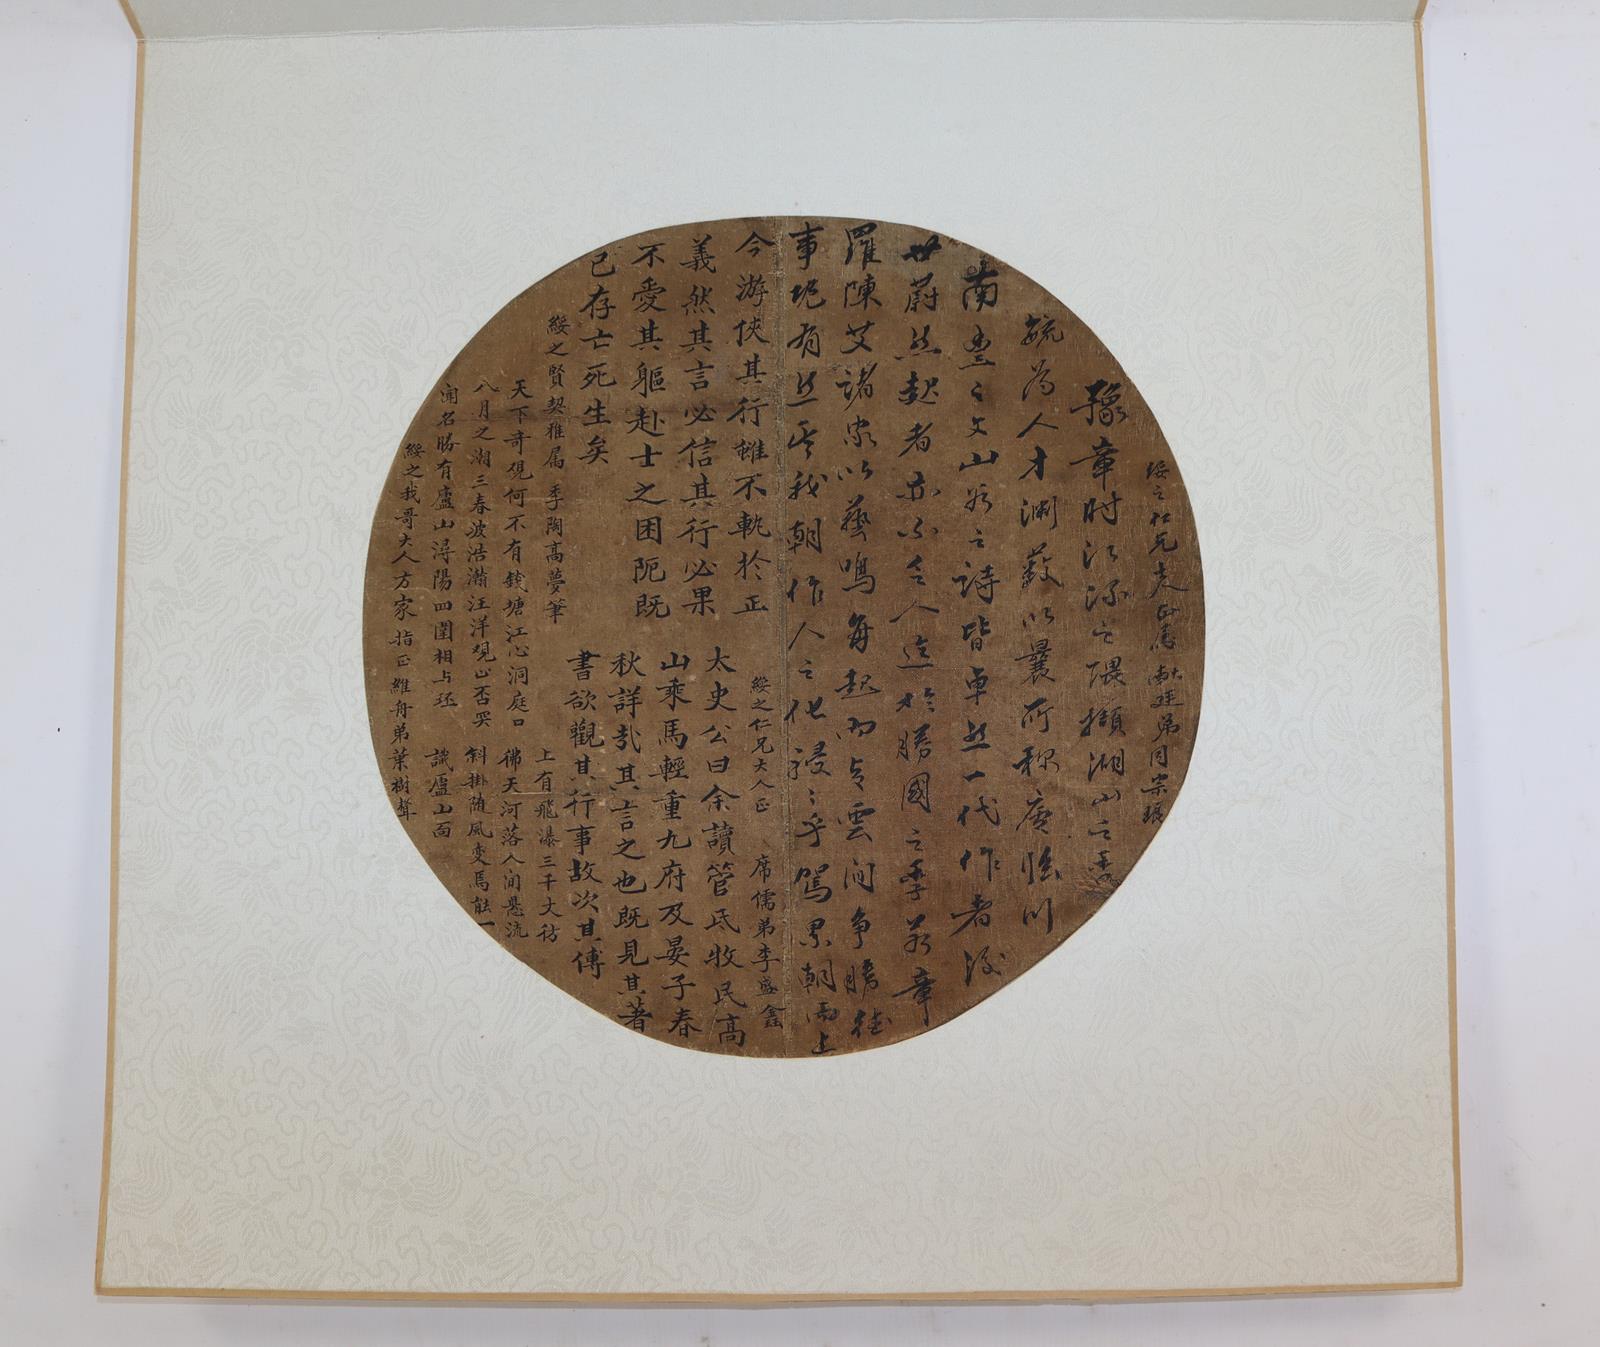 豫章肘江、湖山之
毓為人才淵藪以曩所稱廬臨川
南豊之文山谷之詩皆卓然一代作者後
世蔚然起者亦不乏人迨於勝國之季若章
羅陳艾諸家以藝鳴每起而與雲間爭勝往
事班有然矣我朝作人之化浸〻乎駕累朝而上
綏之仁兄大人正 弟同宗琅
今游俠其行雖不軌於正
義然其言必信其行必果
不愛其軀赴士之困阨既
已存亡死生矣
綏之賢契雅屬 季陶高夢筆
太史公曰余讀管氏牧民高
山乘馬輕重九府及晏子春
秋詳哉其言之也既見其著
書欲觀其行事故次其傳
綏之仁兄大人正 席儒弟李盛鑫
天下奇觀何不有錢塘江心洞庭口
八月之潮三春波浩瀚汪洋觀止否哭
聞名勝有廬山潯陽四圍相与环
上有飛瀑三千丈彷
彿天河落人間懸流
斜掛随風变焉能一
識廬山面
綏之我哥大人方家指正 維舟弟葉樹聲